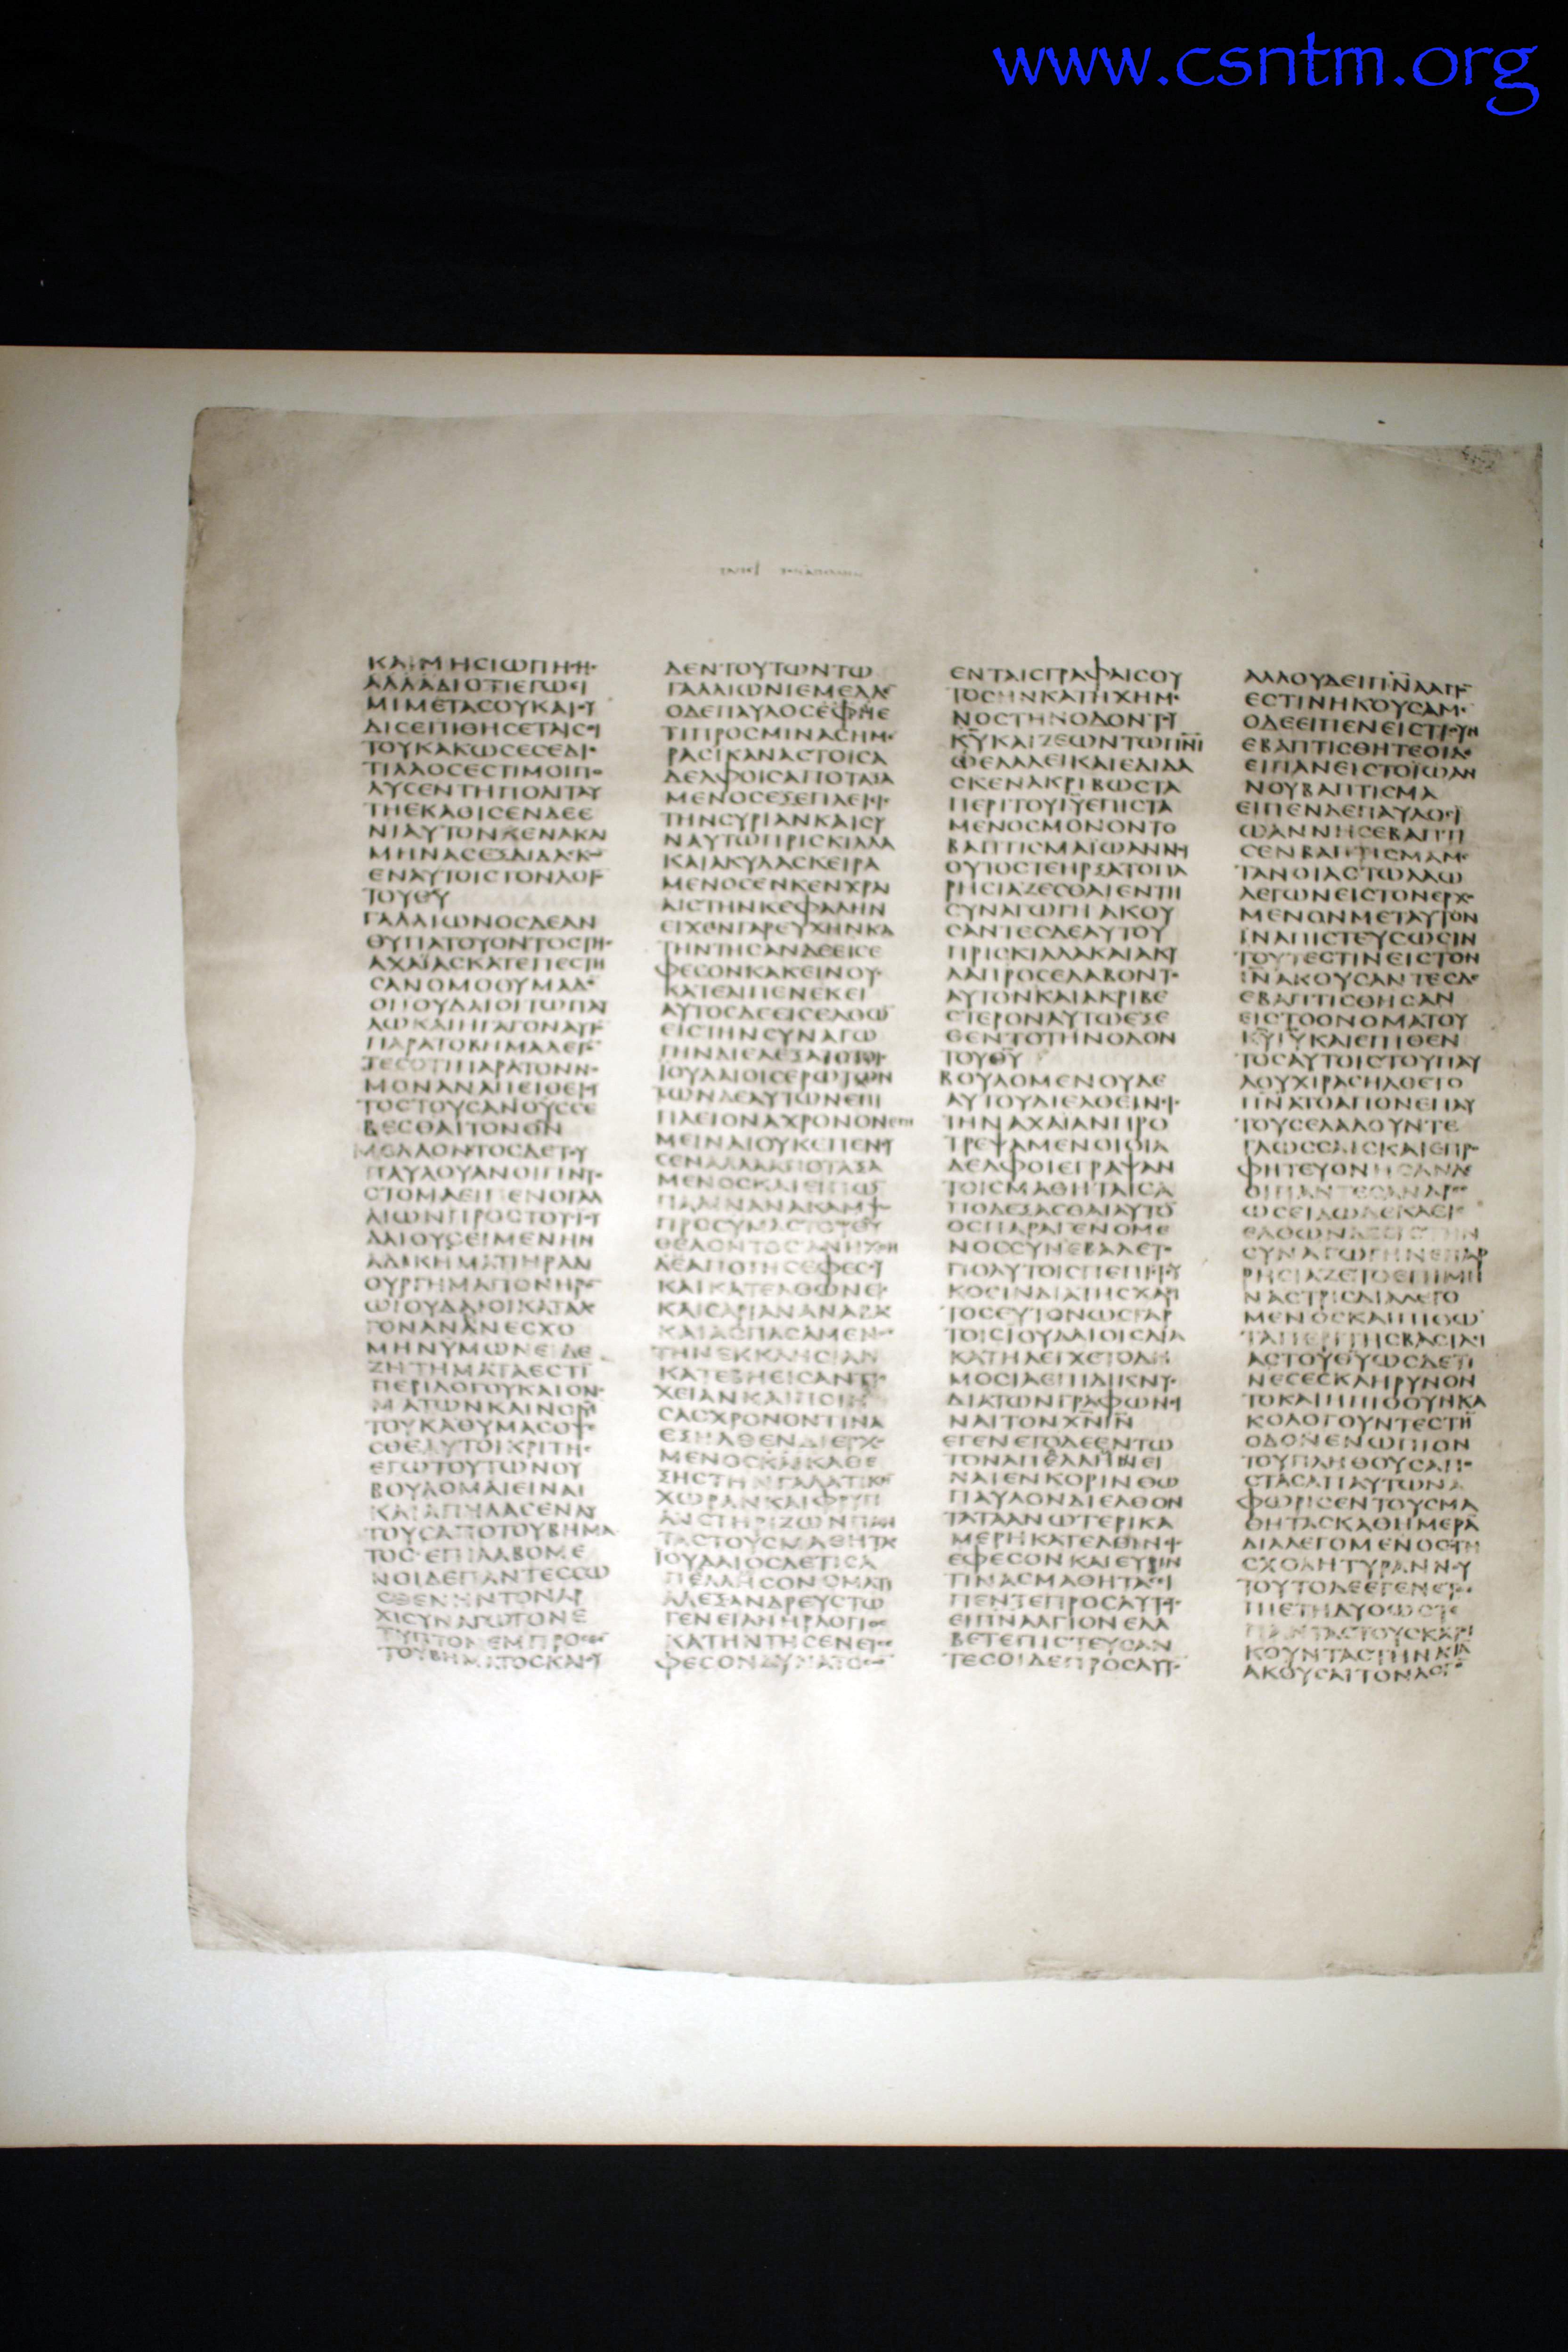 www.csntm.org
ΚΑΙΜΗCΙΩΠΗ
ΑΛΛΑΔΙΟΤΙΕΓΩ
ΜΙΜΕΤΑCΟΥΚΑΙ
ΔΙCΕΠΙΘΗCΕΤΑΙC
ΤΟΥΚΑΚΩCΕCΕΔΙ
ΤΙΛΑΟCΕCΤΙΜΟΙΠ
ΛΥCΕΝΤΗΠΟΛΙΤΑΥ
ΤΗΕΚΑΘΙCΕΝΔΕΕ
ΝΙΑΥΤΟΝΚΕΝΑΚΑΙ
ΜΗΝΑCΕΞΔΙΔΑCΚ
ΕΝΑΥΤΟΙCΤΟΝΛΟΓ
ΤΟΥΘΥ
ΓΑΛΛΙΩΝΟCΔΕΑΝ
ΘΥΠΑΤΟΥΟΝΤΟCΤΗ
ΑΧΑΪΑCΚΑΤΕΠΕCΤΗ
CΑΝΟΜΟΘΥΜΑΔ
ΟΙΙΟΥΔΑΙΟΙΤΩΠΑΥ
ΛΩΚΑΙΗΓΑΓΟΝΑΥΤ
ΠΑΡΑΤΟΒΗΜΑΛΕΓ
ΤΕCΟΤΙΠΑΡΑΤΟΝΝ
ΜΟΝΑΝΑΠΕΙΘΕΙ
ΤΟCΤΟΥCΑΝΟΥCCΕ
ΒΕCΘΑΙΤΟΝΘΝ
ΜΕΛΛΟΝΤΟCΔΕΤΥ
ΠΑΥΛΟΥΑΝΟΙΓΙΝΤ
CΤΟΜΑΕΙΠΕΝΟΓΑΛ
ΛΙΩΝΠΡΟCΤΟΥΙΥ
ΔΑΙΟΥCΕΙΜΕΝΗΝ
ΑΔΙΚΗΜΑΤΙΗΡΑΔΙ
ΟΥΡΓΗΜΑΠΟΝΗΡ
ΩΙΟΥΔΑΙΟΙΚΑΤΑΛ
ΓΟΝΑΝΑΝΕCΧΟ
ΜΗΝΥΜΩΝΕΙΔΕ
ΖΗΤΗΜΑΤΑΕCΤΙ
ΠΕΡΙΛΟΓΟΥΚΑΙΟΝ
ΜΑΤΩΝΚΑΙΝΟΜ
ΤΟΥΚΑΘΥΜΑCΟΨ
CΘΕΑΥΤΟΙΚΡΙΤΗ
ΕΓΩΤΟΥΤΩΝΟΥ
ΒΟΥΛΟΜΑΙΕΙΝΑΙ
ΚΑΙΑΠΗΛΑCΕΝΑΥ
ΤΟΥCΑΠΟΤΟΥΒΗΜΑ
ΤΟCΕΠΙΛΑΒΟΜΕ
ΝΟΙΔΕΠΑΝΤΕCCΩ
CΘΕΝΗΝΤΟΝΑΡ
ΧΙCΥΝΑΓΩΓΟΝΕ
ΤΥΠΤΟΝΕΜΠΡΟ
ΤΟΥΒΗΜΑΤΟCΚΑΙ
ΔΕΝΤΟΥΤΩΝΤΩ
ΓΑΛΛΙΩΝΙΕΜΕΛΛΕ
ΟΔΕΠΑΥΛΟCΕΦΗΕ
ΤΙΠΡΟCΜΙΝΑCΗΜ
ΡΑCΪΚΑΝΑCΤΟΙCΑ
ΔΕΛΦΟΙCΑΠΟΤΑΞΑ
ΜΕΝΟCΕΞΕΠΛΕΙ
ΤΗΝCΥΡΙΑΝΚΑΙCΥ
ΝΑΥΤΩΠΡΙCΚΙΛΛΑ
ΚΑΙΑΚΥΛΑCΚΕΙΡΑ
ΜΕΝΟCΕΝΚΕΝΧΡΑΙ
ΑΙCΤΗΝΚΕΦΑΛΗΝ
ΕΙΧΕΝΓΑΡΕΥΧΗΝΚΑ
ΤΗΝΤΗCΑΝΔΕΕΙCΕ
ΦΕCΟΝΚΑΚΕΙΝΟΥ
ΚΑΤΕΛΙΠΕΝΕΚΕΙ
ΑΥΤΟCΔΕΕΙCΕΛΘΩ
ΕΙCΤΗΝCΥΝΑΓΩ
ΓΗΝΔΙΕΛΕΞΑΤΟΤΟΙ
ΙΟΥΔΑΙΟΙCΕΡΩΤΩΝ
ΤΩΝΔΕΑΥΤΩΝΕΠΙ
ΠΛΕΙΟΝΑΧΡΟΝΟΝ
ΜΕΙΝΑΙΟΥΚΕΠΕΝΕΥ
CΕΝΑΛΛΑΑΠΟΤΑΞΑ
ΜΕΝΟCΚΑΙΕΙΠΩ
ΠΑΛΙΝΑΝΑΚΑΜΨ
ΠΡΟCΥΜΑCΤΟΥΘΥ
ΘΕΛΟΝΤΟCΑΝΗΧΘΗ
ΔΕΑΠΟΤΗCΕΦΕCΟΥ
ΚΑΙΚΑΤΕΛΘΩΝΕΙ
ΚΑΙCΑΡΙΑΝΑΝΑΒΑ
ΚΑΙΑCΠΑCΑΜΕΝ
ΤΗΝΕΚΚΛΗCΙΑΝ
ΚΑΤΕΒΗΕΙCΑΝΤΙ
ΧΕΙΑΝΚΑΙΠΟΙΗ
CΑCΧΡΟΝΟΝΤΙΝΑ
ΕΞΗΛΘΕΝΔΙΕΡΧ
ΜΕΝΟCΚΑΙΚΑΘΕ
ΞΗCΤΗΝΓΑΛΑΤΙΚΗ
ΧΩΡΑΝΚΑΙΦΡΥΓΙ
ΑΝCΤΗΡΙΖΩΝΠΑΝ
ΤΑCΤΟΥCΜΑΘΗΤΑ
ΙΟΥΔΑΙΟCΔΕΤΙCΑ
ΠΕΛΛΗCΟΝΟΜΑΤΙ
ΑΛΕΞΑΝΔΡΕΥCΤΩ
ΓΕΝΕΙΑΝΗΡΛΟΓΙ
ΚΑΤΗΝΤΗCΕΝΕΙ
ΦΕCΟΝΔΥΝΑΤΟ
ΕΝΤΑΙCΓΡΑΦΑΙCΟΥ
ΤΟCΗΝΚΑΤΗΧΗΜ
ΝΟCΤΗΝΟΔΟΝΤΥ
ΚΥΚΑΙΖΕΩΝΤΩΠΝΙ
ΩΕΛΑΛΕΙΚΑΙΕΔΙΔΑ
CΚΕΝΑΚΡΙΒΩCΤΑ
ΠΕΡΙΤΟΥΙΥΕΠΙCΤΑ
ΜΕΝΟCΜΟΝΟΝΤΟ
ΒΑΠΤΙCΜΑΙΩΑΝΝΥ
ΟΥΤΟCΤΕΗΡΞΑΤΟΠΑ
ΡΗCΙΑΖΕCΘΑΙΕΝΤΗ
CΥΝΑΓΩΓΗΑΚΟΥ
CΑΝΤΕCΔΕΑΥΤΟΥ
ΠΡΙCΚΙΛΛΑΚΑΙΑΚΥ
ΛΑΠΡΟCΕΛΑΒΟΝΤ
ΑΥΤΟΝΚΑΙΑΚΡΙΒΕ
CΤΕΡΟΝΑΥΤΩΕΞΕ
ΘΕΝΤΟΤΗΝΟΔΟΝ
ΤΟΥΘΥ
ΒΟΥΛΟΜΕΝΟΥΔΕ
ΑΥΤΟΥΔΙΕΛΘΕΙΝΙ
ΤΗΝΑΧΑΙΑΝΠΡΟ
ΤΡΕΨΑΜΕΝΟΙΟΙΑ
ΔΕΛΦΟΙΕΓΡΑΨΑΝ
ΤΟΙCΜΑΘΗΤΑΙCΑ
ΠΟΔΕΞΑCΘΑΙΑΥΤΟ
ΟCΠΑΡΑΓΕΝΟΜΕ
ΝΟCCΥΝΕΒΑΛΕΤ
ΠΟΛΥΤΟΙCΠΕΠΙCΤΥ
ΚΟCΙΝΔΙΑΤΗCΧΑΡΙ
ΤΟCΕΥΤΟΝΩCΓΑΡ
ΤΟΙCΙΟΥΔΑΙΟΙCΔΙΑ
ΚΑΤΗΛΕΓΧΕΤΟΔΗ
ΜΟCΙΑΕΠΙΔΙΚΝΥ
ΔΙΑΤΩΝΓΡΑΦΩΝΙ
ΝΑΙΤΟΝΧΝΙΝ
ΕΓΕΝΕΤΟΔΕΕΝΤΩ
ΤΟΝΑΠΕΛΛΗΝΕΙ
ΝΑΙΕΝΚΟΡΙΝΘΩ
ΠΑΥΛΟΝΔΙΕΛΘΟΝ
ΤΑΤΑΑΝΩΤΕΡΙΚΑ
ΜΕΡΗΚΑΤΕΛΘΙΝΙ
ΕΦΕCΟΝΚΑΙΕΥΡΙΝ
ΤΙΝΑCΜΑΘΗΤΑ
ΠΕΝΤΕΠΡΟCΑΥΤΥ
ΕΙΠΝΑΑΓΙΟΝΕΛΑ
ΒΕΤΕΠΙCΤΕΥCΑΝ
ΤΕCΟΙΔΕΠΡΟCΑΥΤ
ΑΛΛΟΥΔΕΙΠΝΑΑΓΙ
ΕCΤΙΝΗΚΟΥCΑΜ
ΟΔΕΕΙΠΕΝΕΙCΤΙΥΝ
ΕΒΑΠΤΙCΘΗΤΕΟΙΔ
ΕΙΠΑΝΕΙCΤΟΙΩΑΝ
ΝΟΥΒΑΠΤΙCΜΑ
ΕΙΠΕΝΔΕΠΑΥΛΟΙ
ΩΑΝΝΗCΕΒΑΠΤΙ
CΕΝΒΑΠΤΙCΜΑΜ
ΤΑΝΟΙΑCΤΩΛΑΩ
ΛΕΓΩΝΕΙCΤΟΝΕΡΧ
ΜΕΝΟΝΜΕΤΑΥΤΟΝ
ΙΝΑΠΙCΤΕΥCΩCΙΝ
ΤΟΥΤΕCΤΙΝΕΙCΤΟΝ
ΙΝΑΚΟΥCΑΝΤΕCΔ
ΕΒΑΠΤΙCΘΗCΑΝ
ΕΙCΤΟΟΝΟΜΑΤΟΥ
ΚΥΙΥΚΑΙΕΠΙΘΕΝ
ΤΟCΑΥΤΟΙCΤΟΥΠΑΥ
ΛΟΥΧΙΡΑCΗΛΘΕΤΟ
ΠΝΑΤΟΑΓΙΟΝΕΠΑΥ
ΤΟΥCΕΛΑΛΟΥΝΤΕ
ΓΛΩCCΑΙCΚΑΙΕΠΡ
ΦΗΤΕΥΟΝΗCΑΝΔΕ
ΟΙΠΑΝΤΕCΑΝΔΡ
ΩCΕΙΔΩΔΕΚΑΕΙ
ΕΛΘΩΝΔΕΕΙCΤΗΝ
CΥΝΑΓΩΓΗΝΕΠΑΡ
ΡΗCΙΑΖΕΤΟΕΠΙΜΗ
ΝΑCΤΡΙCΔΙΑΛΕΓΟ
ΜΕΝΟCΚΑΙΠΙΘΩ
ΤΑΠΕΡΙΤΗCΒΑCΙΛΙ
ΑCΤΟΥΘΥΩCΔΕΤΙ
ΝΕCΕCΚΛΗΡΥΝΟΝ
ΤΟΚΑΙΗΠΙΘΟΥΝΚΑ
ΚΟΛΟΓΟΥΝΤΕCΤΗ
ΟΔΟΝΕΝΩΠΙΟΝ
ΤΟΥΠΛΗΘΟΥCΑΠ
CΤΑCΑΠΑΥΤΩΝΑ
ΦΩΡΙCΕΝΤΟΥCΜΑ
ΘΗΤΑCΚΑΘΗΜΕΡΑ
ΔΙΑΛΕΓΟΜΕΝΟCΤΗ
CΧΟΛΗΤΥΡΑΝΝΥ
ΤΟΥΤΟΔΕΕΓΕΝΕΤ
ΠΙΕΤΗΔΥΟΩCΤ
ΠΑΝΤΑCΤΟΥCΚΑΤΙ
ΚΟΥΝΤΑCΤΗΝΑCΙΑ
ΑΚΟΥCΑΙΤΟΝΛΟΓ